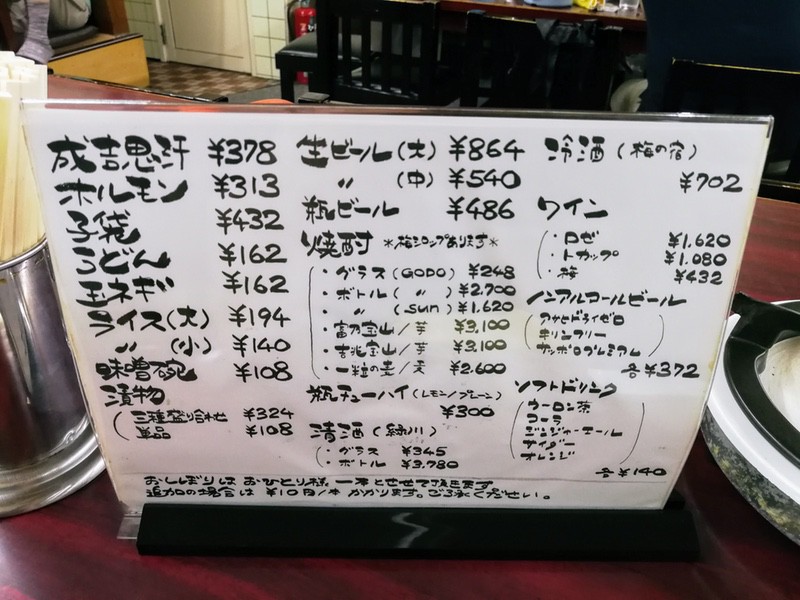 成吉思汗 ¥378
ホルモン ¥313
子袋 ¥432
うどん ¥162
玉ネギ ¥162
ライス(大) ¥194
〃 (小) ¥140
味噌碗 ¥108
漬物
三種盛り合わせ ¥324
単品 ¥108
生ビール(大) ¥864
〃 (中) ¥540
瓶ビール ¥486
焼酎 *梅シロップあります*
・グラス(GODO) ¥248
・ボトル( 〃 ) ¥2.700
・ 〃 (sun) ¥1.620
・富乃宝山/芋 ¥3,100
・吉兆宝山/芋 ¥3,100
・一粒の麦/麦 ¥2.600
瓶チューハイ(レモン/プレーン)
¥300
清酒(緑川)
・グラス ¥345
・ボトル ¥3,780
冷酒(梅の宿)
¥702
ワイン
・ロゼ ¥1.620
・トカップ ¥1.080
・梅 ¥432
ノンアルコールビール
アサヒドライゼロ
キリンフリー
サッポロプレミアム
各¥372
ソフトドリンク
ウーロン茶
コーラ
ジンジャーエール
サイダー
オレンジ
各¥140
おしぼりはおひとり様、一本とさせて頂きます。
追加の場合は¥10円/本かかります。ご了承ください。